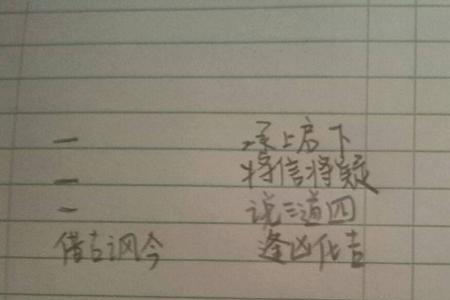 一 承上启下
一 将信将疑
一 说三道四
借古讽今 逢凶化吉